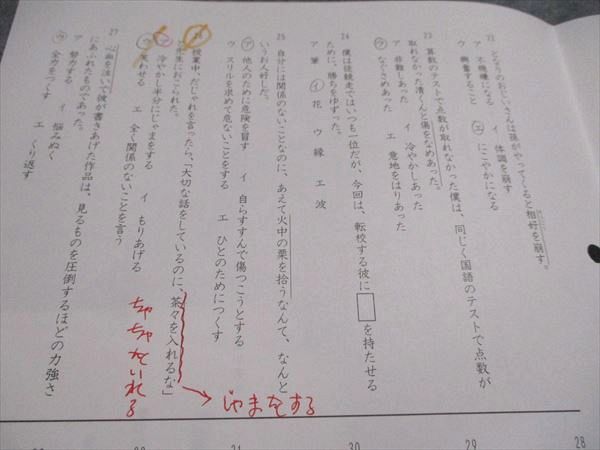 22 となりのおじいさんは孫がやってくると相好を崩す。
ア 不機嫌になる イ 体調を崩す
ウ 興奮すること エ にこやかになる
23 算数のテストで点数が取れなかった僕は、同じく国語のテストで点数が
取れなかった清くんと傷をなめあった。
ア 非難しあった イ 冷やかしあった
ウ なぐさめあった エ 意地をはりあった
24 僕は徒競走ではいつも一位だが、今回は、転校する彼に□を持たせる
ために、勝ちをゆずった。
ア 葉 イ 花 ウ 縁 エ 波
25 自分には関係のないことなのに、あえて火中の栗を拾うなんて、なんと
いうお人好しだ。
ア 他人のために危険を冒す イ 自らすすんで傷つこうとする
ウ スリルを求めて危ないことをする エ ひとのためにつくす
26 授業中、だじゃれを言ったら、「大切な話をしているのに、茶々を入れるな」
と先生におこられた。
ア 冷やかし半分にじゃまをする イ もりあげる
ウ 笑わせる エ 全く関係のないことを言う
じゃまをする
ちゃちゃをいれる
27 心血を注いで彼が書きあげた作品は、見るものを圧倒するほどの力強さ
にあふれたものであった。
ア 努力する イ 悩みぬく
ウ 全力をつくす エ くり返す
28
29
30
31